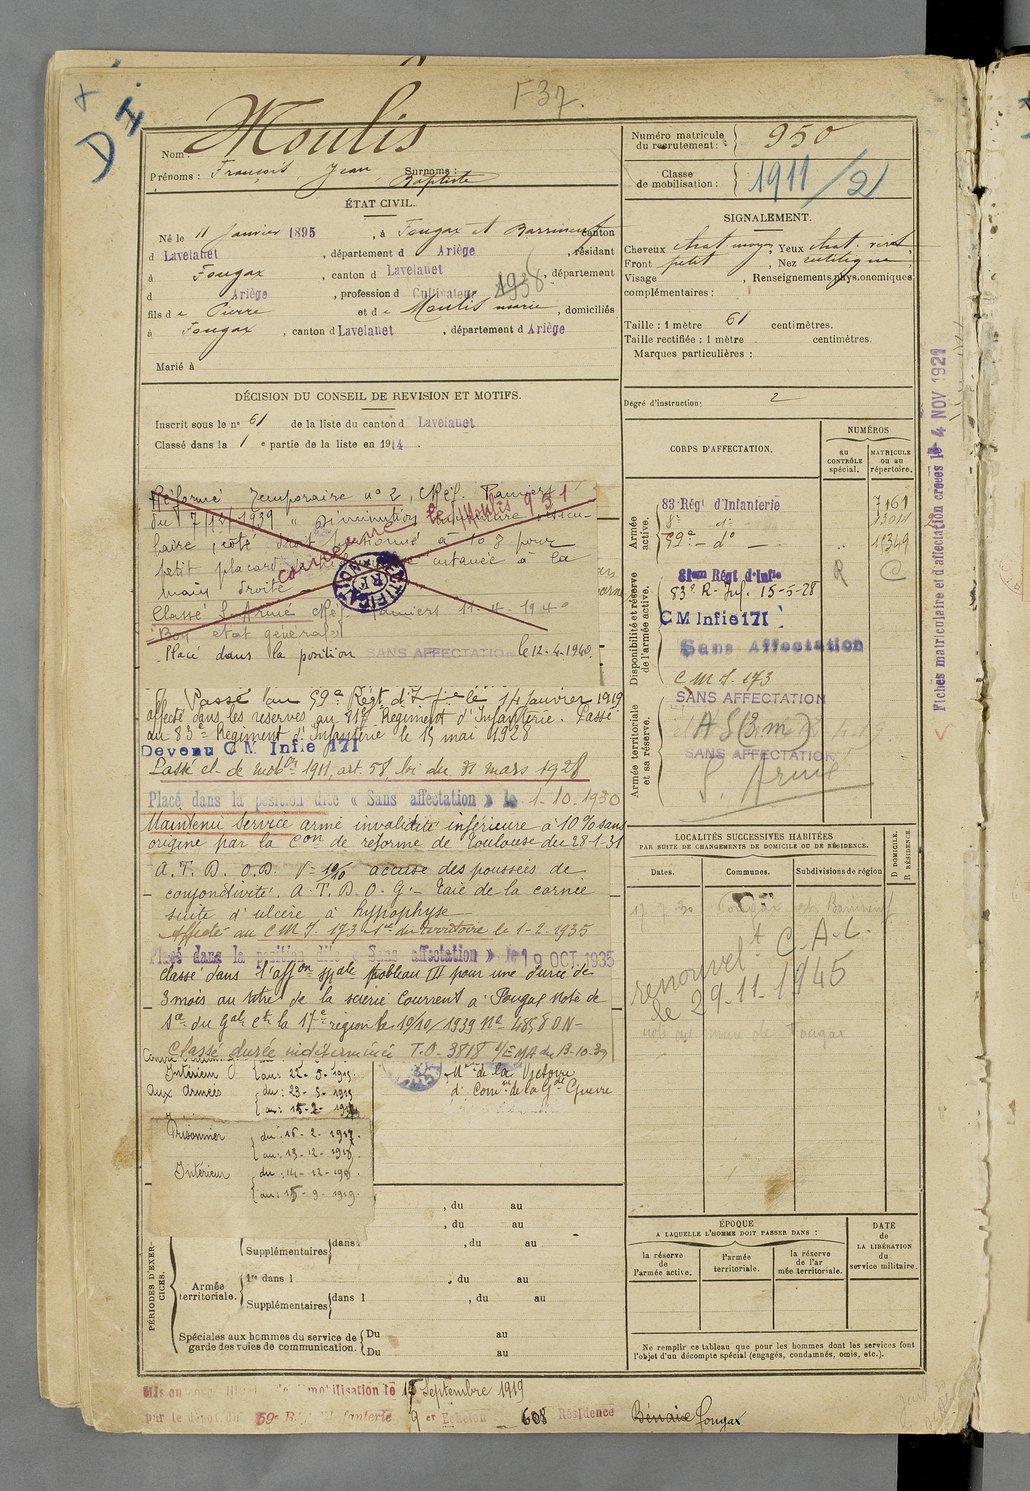 F37.
D I
Nom : Moulis
Prénoms : François Jean Baptiste Surnoms :
Numéro matricule du recrutement : 950
Classe de mobilisation : 1911/2
ÉTAT CIVIL.
Né le 11 Janvier 1895, à Fougax et Barrineuf canton
d Lavelanet, département d Ariège, résidant
à Fougax, canton d Lavelanet, département
d Ariège, profession d Cultivateur 1938.
fils de Pierre et de Moulis marie, domiciliés
à Fougax, canton d Lavelanet, département d Ariège
Marié à
SIGNALEMENT.
Cheveux chat moyen, Yeux chat. verd.
Front petit, Nez rectiligne.
Visage , Renseignements physionomiques
complémentaires :
Taille : 1 mètre 61 centimètres.
Taille rectifiée : 1 mètre centimètres.
Marques particulières :
Degré d'instruction: 2
DÉCISION DU CONSEIL DE REVISION ET MOTIFS.
Inscrit sous le n° 61 de la liste du canton d Lavelanet
Classé dans la 1e partie de la liste en 1914.
Réformé temporaire n° 2, CRéf. Pamiers
du 7/12/1939 "Diminution
laire, côté droit à 10 % pour
petit placard cutanée à la
main droite
Classé S. Armé CRéf. Pamiers 11-4-1940
Bon état général
Placé dans la position SANS AFFECTATION le 12-4-1940.
Passé au 59e Régt d'Inf-ie le 14 janvier 1919
affecté dans les réserves au 81e Régiment d'Infanterie. Passé
au 83e Régiment d'Infanterie le 15 mai 1928
Devenu C M Infie 171
Passé cl. de mobon 1911, art. 58, loi du 31 mars 1928
Placé dans la position dite « Sans affectation » le 1-10-1930
Maintenu Service armé invalidité inférieure à 10 % sans
origine par la Con de réforme de Toulouse du 28-1-31
A. T. D. O.D. V= accuse des poussées de
conjonctivité. A. T. D. O. G. - Taie de la cornée
suite d'ulcère à hypophyse
Affecté au C M I. 173 du territoire le 1-2-1935
Placé dans la position dite « Sans affectation » le 19 OCT. 1935
classé dans l'affon spale tableau III pour une durée de
3 mois au titre de la scierie Courrent à Fougax note de
la 17e région le 10/10/1939 No 4858 O.N-
Classé durée indéterminée T.O-3818 1/EMA du 13-10-39
Intérieur au: 22-5-1915.
Aux Armées du: 23-5-1915
au: 15-2-1917
Prisonnier du: 16-2-1917.
au: 13-12-1918.
Intérieur du: 14-12-1918
au: 15-9-1919.
Mlle de la Victoire
d° Comve de la Gde Guerre
CORPS D'AFFECTATION.
NUMÉROS
au CONTRÔLE spécial.
MATRICULE ou au répertoire.
Armée active.
83 Régt d'Infanterie 7161
8e d°
59e - d° - 12349
Disponibilité et réserve de l'armée active.
81em Régt d'Infie R C
83e R. Inf. 15-5-28
C M Infie 171
Sans Affectation
C M I. 173
Armée territoriale et sa réserve.
SANS AFFECTATION
A S (3m)
SANS AFFECTATION
S. Armé
LOCALITÉS SUCCESSIVES HABITÉES
PAR SUITE DE CHANGEMENTS DE DOMICILE OU DE RÉSIDENCE.
Dates. Communes. Subdivisions de région
D DOMICILE.
R RÉSIDENCE.
Fougax et Barrineuf
renouvelt C. A. C.
le 29-11-1945
ÉPOQUE
A LAQUELLE L'HOMME DOIT PASSER DANS :
la réserve de l'armée active.
l'armée territoriale.
la réserve de l'armée territoriale.
DATE de LA LIBÉRATION du service militaire.
Ne remplir ce tableau que pour les hommes dont les services font
l'objet d'un décompte spécial (engagés, condamnés, omis, etc.).
PÉRIODES D'EXERCICES.
, du au
, du au
Supplémentaires dans l , du au
Armée territoriale.
1re dans l . du au
Supplémentaires dans l , du au
Spéciales aux hommes du service de garde des voies de communication.
Du au
Du au
Mis en congé illimité de démobilisation le 15 Septembre 1919
par le dépôt du 59e Rég. d'Infanterie 9er Echelon 608 Résidence Bénaix Fougax
Fiches matriculaire et d'affectation créées le 4 NOV 1921